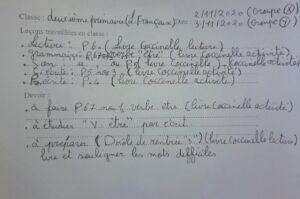 Classe : deuxième primaire (1 Français) Date : 2/11/2020 (Groupe X)
3/11/2020 (Groupe Y)
Leçons travaillées en classe :
. lecture : P 6 (livre Coccinelle lecture)
. grammaire : "être" (livre Coccinelle activité)
. Son ou P 5 (livre Coccinelle activité)
. P 5 no 3 (livre Coccinelle activité)
. P 4 (livre Coccinelle activité)
Devoir :
. à faire P 67 no 1 verbe être (livre Coccinelle activité)
. à étudier "V. être" par écrit
. à préparer (Drôle de rentrée "s") (livre Coccinelle lecture)
lire et souligner les mots difficiles